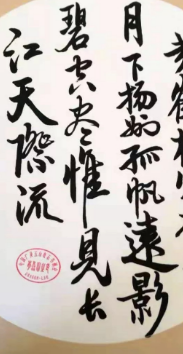 月下扬州孤帆遠影
碧空尽惟見长
江天際流